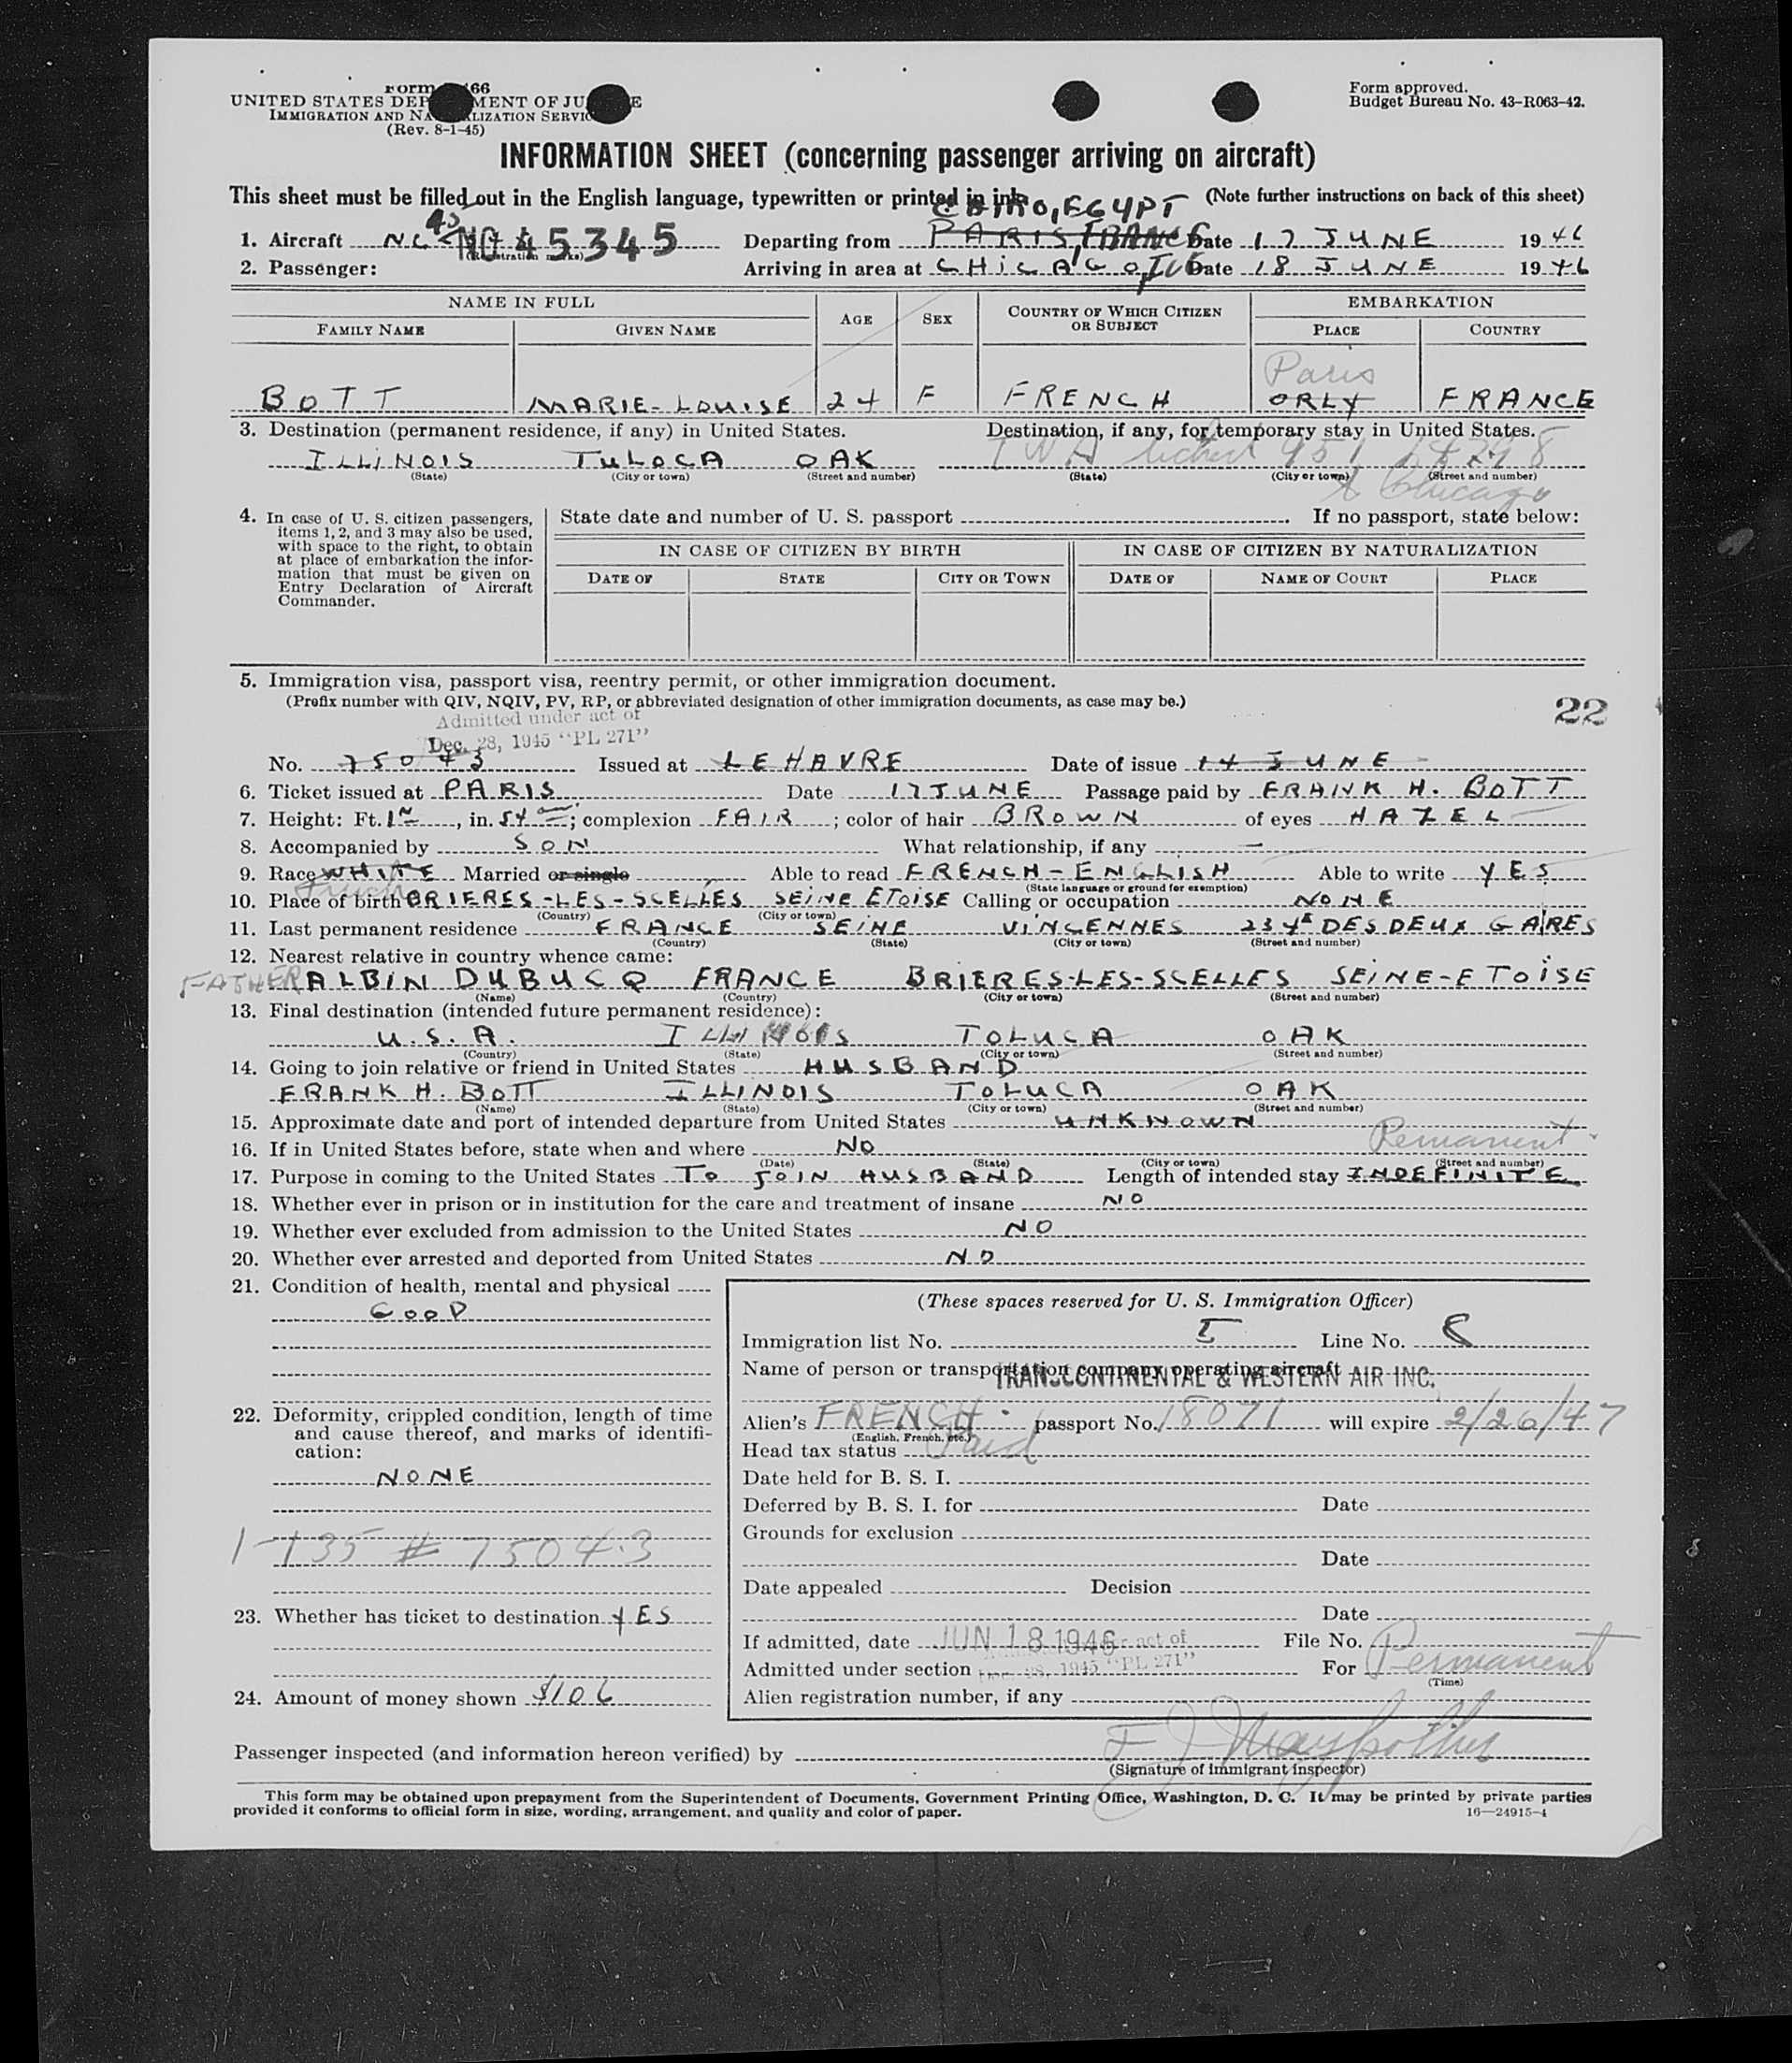 Form 66
UNITED STATES DEP MENT OF JU E
IMMIGRATION AND NA LIZATION SERVIC
(Rev. 8-1-45)
Form approved.
Budget Bureau No. 43-R063-42.
INFORMATION SHEET (concerning passenger arriving on aircraft)
This sheet must be filled out in the English language, typewritten or printed in ink. (Note further instructions on back of this sheet)
CAIRO, EGYPT
1. Aircraft NC 45345 (Registration marks) Departing from PARIS, FRANCE Date 17 JUNE 1946
2. Passenger: Arriving in area at CHICAGO, Ill Date 18 JUNE 1946
NAME IN FULL AGE SEX COUNTRY OF WHICH CITIZEN OR SUBJECT EMBARKATION
FAMILY NAME GIVEN NAME PLACE COUNTRY
Paris
BOTT MARIE-LOUISE 24 F FRENCH ORLY FRANCE
3. Destination (permanent residence, if any) in United States. Destination, if any, for temporary stay in United States.
ILLINOIS TULOCA OAK TWA ticket 951
(State) (City or town) (Street and number) (State) (City or town) (Street and number)
to Chicago
4. In case of U. S. citizen passengers, items 1, 2, and 3 may also be used, with space to the right, to obtain at place of embarkation the information that must be given on Entry Declaration of Aircraft Commander.
State date and number of U. S. passport . If no passport, state below:
IN CASE OF CITIZEN BY BIRTH IN CASE OF CITIZEN BY NATURALIZATION
DATE OF STATE CITY OR TOWN DATE OF NAME OF COURT PLACE
5. Immigration visa, passport visa, reentry permit, or other immigration document.
(Prefix number with QIV, NQIV, PV, RP, or abbreviated designation of other immigration documents, as case may be.)
22
Admitted under act of
Dec. 28, 1945 "PL 271"
No. 75043 Issued at LE HAVRE Date of issue 14 JUNE
6. Ticket issued at PARIS Date 17 JUNE Passage paid by FRANK H. BOTT
7. Height: Ft. 1m, in. 54; complexion FAIR; color of hair BROWN of eyes HAZEL
8. Accompanied by SON What relationship, if any —
9. Race WHITE Married or single Able to read FRENCH-ENGLISH Able to write YES
French (State language or ground for exemption)
10. Place of birth BRIERES-LES-SCELLES SEINE ETOISE Calling or occupation NONE
(Country) (City or town)
11. Last permanent residence FRANCE SEINE VINCENNES 23 DES DEUX GARES
(Country) (State) (City or town) (Street and number)
12. Nearest relative in country whence came:
FATHER ALBIN DUBUCQ FRANCE BRIERES-LES-SCELLES SEINE-ETOISE
(Name) (Country) (City or town) (Street and number)
13. Final destination (intended future permanent residence):
U.S.A. ILLINOIS TOLUCA OAK
(Country) (State) (City or town) (Street and number)
14. Going to join relative or friend in United States HUSBAND
FRANK H. BOTT ILLINOIS TOLUCA OAK
(Name) (State) (City or town) (Street and number)
15. Approximate date and port of intended departure from United States UNKNOWN
16. If in United States before, state when and where NO Permanent
(Date) (State) (City or town) (Street and number)
17. Purpose in coming to the United States TO JOIN HUSBAND Length of intended stay INDEFINITE
18. Whether ever in prison or in institution for the care and treatment of insane NO
19. Whether ever excluded from admission to the United States NO
20. Whether ever arrested and deported from United States NO
21. Condition of health, mental and physical
GOOD
22. Deformity, crippled condition, length of time and cause thereof, and marks of identification:
NONE
1-135 # 75043
23. Whether has ticket to destination YES
24. Amount of money shown $106
(These spaces reserved for U. S. Immigration Officer)
Immigration list No. I Line No. 8
Name of person or transportation company operating aircraft
TRANSCONTINENTAL & WESTERN AIR INC.
Alien's FRENCH passport No. 18071 will expire 2/26/47
(English, French, etc.)
Head tax status Paid
Date held for B. S. I.
Deferred by B. S. I. for Date
Grounds for exclusion
Date
Date appealed Decision
Date
If admitted, date JUN 18 1946 File No.
Admitted under section Dec. 28, 1945 "PL 271" For Permanent
(Time)
Alien registration number, if any
Passenger inspected (and information hereon verified) by
(Signature of immigrant inspector)
This form may be obtained upon prepayment from the Superintendent of Documents, Government Printing Office, Washington, D. C. It may be printed by private parties
provided it conforms to official form in size, wording, arrangement, and quality and color of paper. 16—24915-4